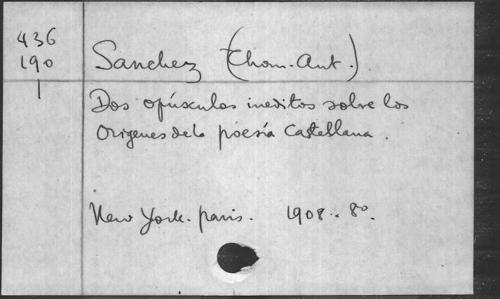 436
190
1
Sanchez (Thom. Ant.).
Dos opúsculos ineditos sobre los
Origenes de la poesía Castellana.
New York. paris. 1908. 8º.